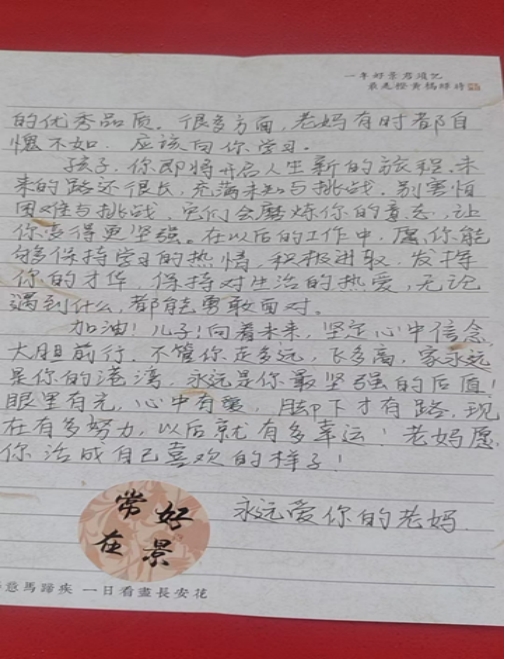 一年好景君须记
最是橙黄橘绿时
的优秀品质。很多方面,老妈有时都自
愧不如,应该向你学习。
孩子,你即将开启人生新的旅程,未
来的路还很长,充满未知与挑战。别害怕
困难与挑战,它们会磨炼你的意志,让
你变得更坚强。在以后的工作中,愿你能
够保持学习的热情,积极进取,发挥
你的才华,保持对生活的热爱,无论
遇到什么,都能勇敢面对。
加油!儿子!向着未来,坚定心中信念,
大胆前行。不管你走多远,飞多高,家永远
是你的港湾,永远是你最坚强的后盾!
眼里有光,心中有爱,脚下才有路,现
在有多努力,以后就有多幸运!老妈愿
你活成自己喜欢的样子!
永远爱你的老妈
常好
在景
意馬蹄疾 一日看盡長安花